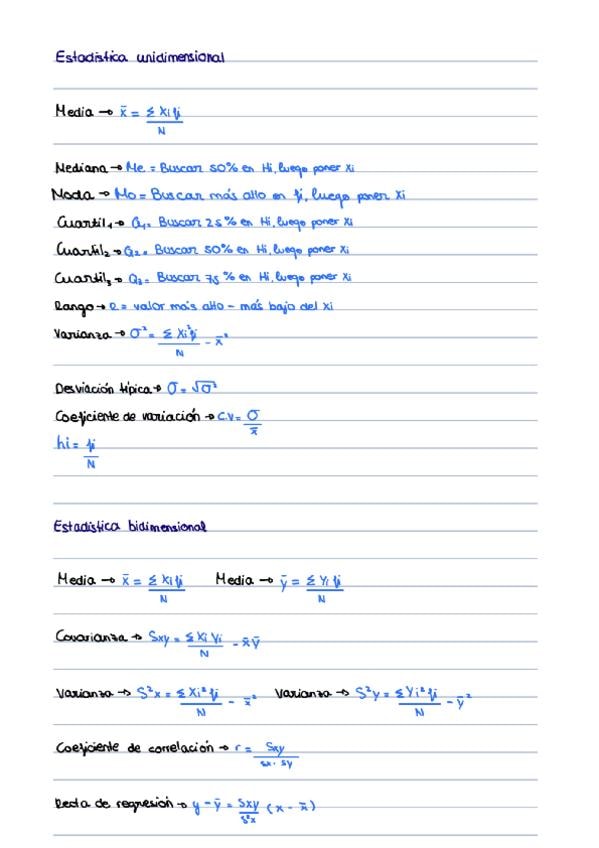 Estadística unidimensional
Media → x̄ = Σ xi fi / N
Mediana → Me = Buscar 50% en Hi, luego poner xi
Moda → Mo = Buscar más alto en fi, luego poner xi
Cuartil₁ → Q₁ = Buscar 25% en Hi, luego poner xi
Cuartil₂ → Q₂ = Buscar 50% en Hi, luego poner xi
Cuartil₃ → Q₃ = Buscar 75% en Hi, luego poner xi
Rango → R = valor más alto - más bajo del xi
Varianza → σ² = Σ xi² fi / N - x̄²
Desviación típica → σ = √σ²
Coeficiente de variación → C.V = σ / x̄
hi = fi / N
Estadística bidimensional
Media → x̄ = Σ xi fi / N Media → ȳ = Σ yi fi / N
Covarianza → Sxy = Σ xi yi / N - x̄ ȳ
Varianza → S²x = Σ xi² fi / N - x̄² Varianza → S²y = Σ yi² fi / N - ȳ²
Coeficiente de correlación → r = Sxy / sx · sy
Recta de regresión → y - ȳ = Sxy / s²x (x - x̄)